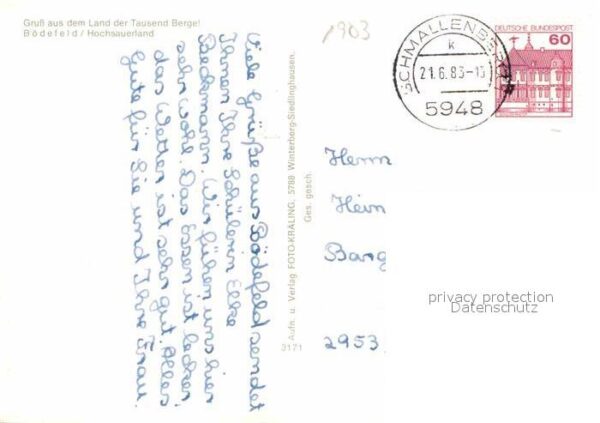 Gruß aus dem Land der Tausend Berge!
Bödefeld / Hochsauerland
Viele Grüße aus Bödefeld sendet
Ihnen Ihre Schülerin Elke
Beckmann. Wir fühlen uns hier
sehr wohl. Das Essen ist lecker,
das Wetter ist sehr gut. Alles
Gute für Sie und Ihre Frau.
3171
Aufn. u. Verlag FOTO-KRÄLING, 5788 Winterberg-Siedlinghausen
Ges. gesch.
1903
SCHMALLENBERG
k
21.6.83-15
5948
DEUTSCHE BUNDESPOST
60
Herrn
Hein
Barg
2953
privacy protection
Datenschutz